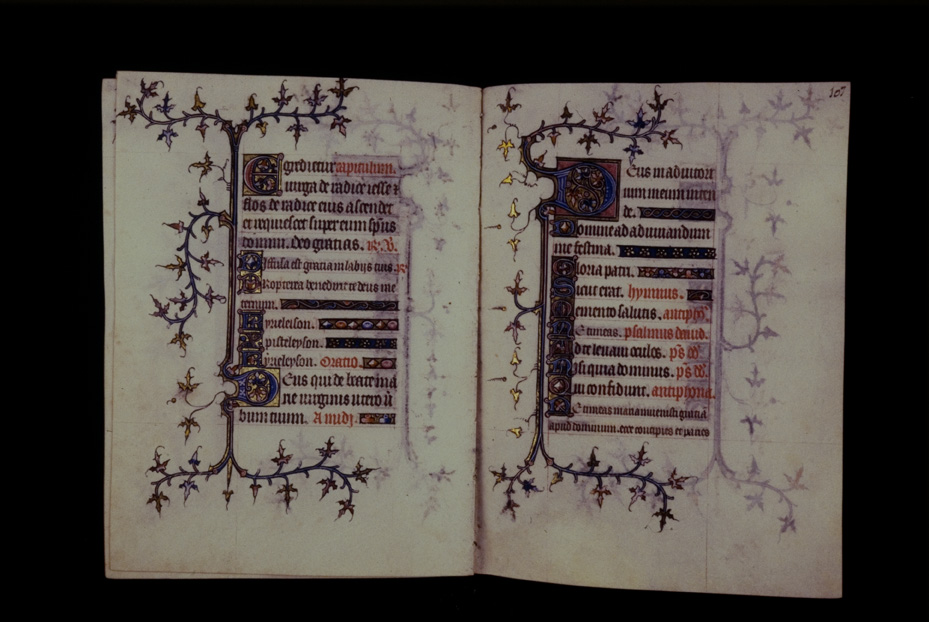 Egredietur capitulum.
uirga de radice iesse et
flos de radice eius ascendet
et requiescet super eum sp̄us
domini. deo gracias. ℟. ℣.
Diffusa est gracia in labijs tuis. ℟
Propterea benedixit te deus in e
ternum.
Kyrieleison.
Xpisteleyson.
Kyrieleyson. Oratio.
Deus qui de beate ma
rie uirginis utero ū
bum tuum. A midi.
107
Deus in adiutori
um meum inten
de.
Domine ad adiuuandum
me festina.
Gloria patri.
Sicut erat. hymnus.
Memento salutis. antiph̄.
Ne timeas. psalmus dauid.
Ad te leuaui oculos. p̄s d̄d.
Nisi quia dominus. p̄s d̄d.
Qui confidunt. antiphona.
Ne timeas maria inuenisti graciā
apud dominum. ecce concipies et paries